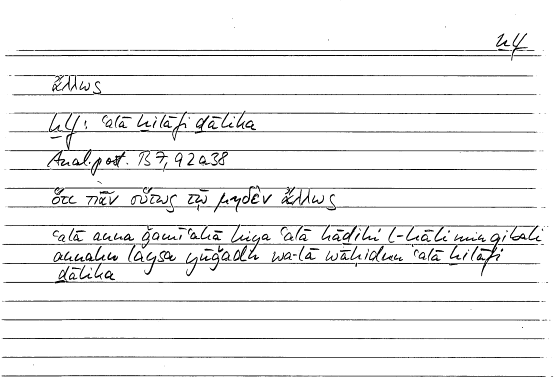 ḫlf
ἄλλως
ḫlf: ʿalā ḫilāfi ḏālika
Anal. post. B 7, 92a38
ὅτι πᾶν οὕτως τῷ μηδὲν ἄλλως
ʿalā anna ǧamīʿahā hiya ʿalā hāḏihi l-ḥāli min qibali
annahu laysa yūǧadu wa-lā wāḥidun ʿalā ḫilāfi
ḏālika